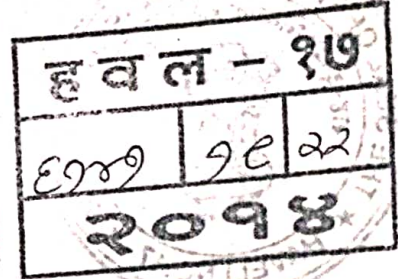 हवल - १७
६१४१ १९ २२
२०१४